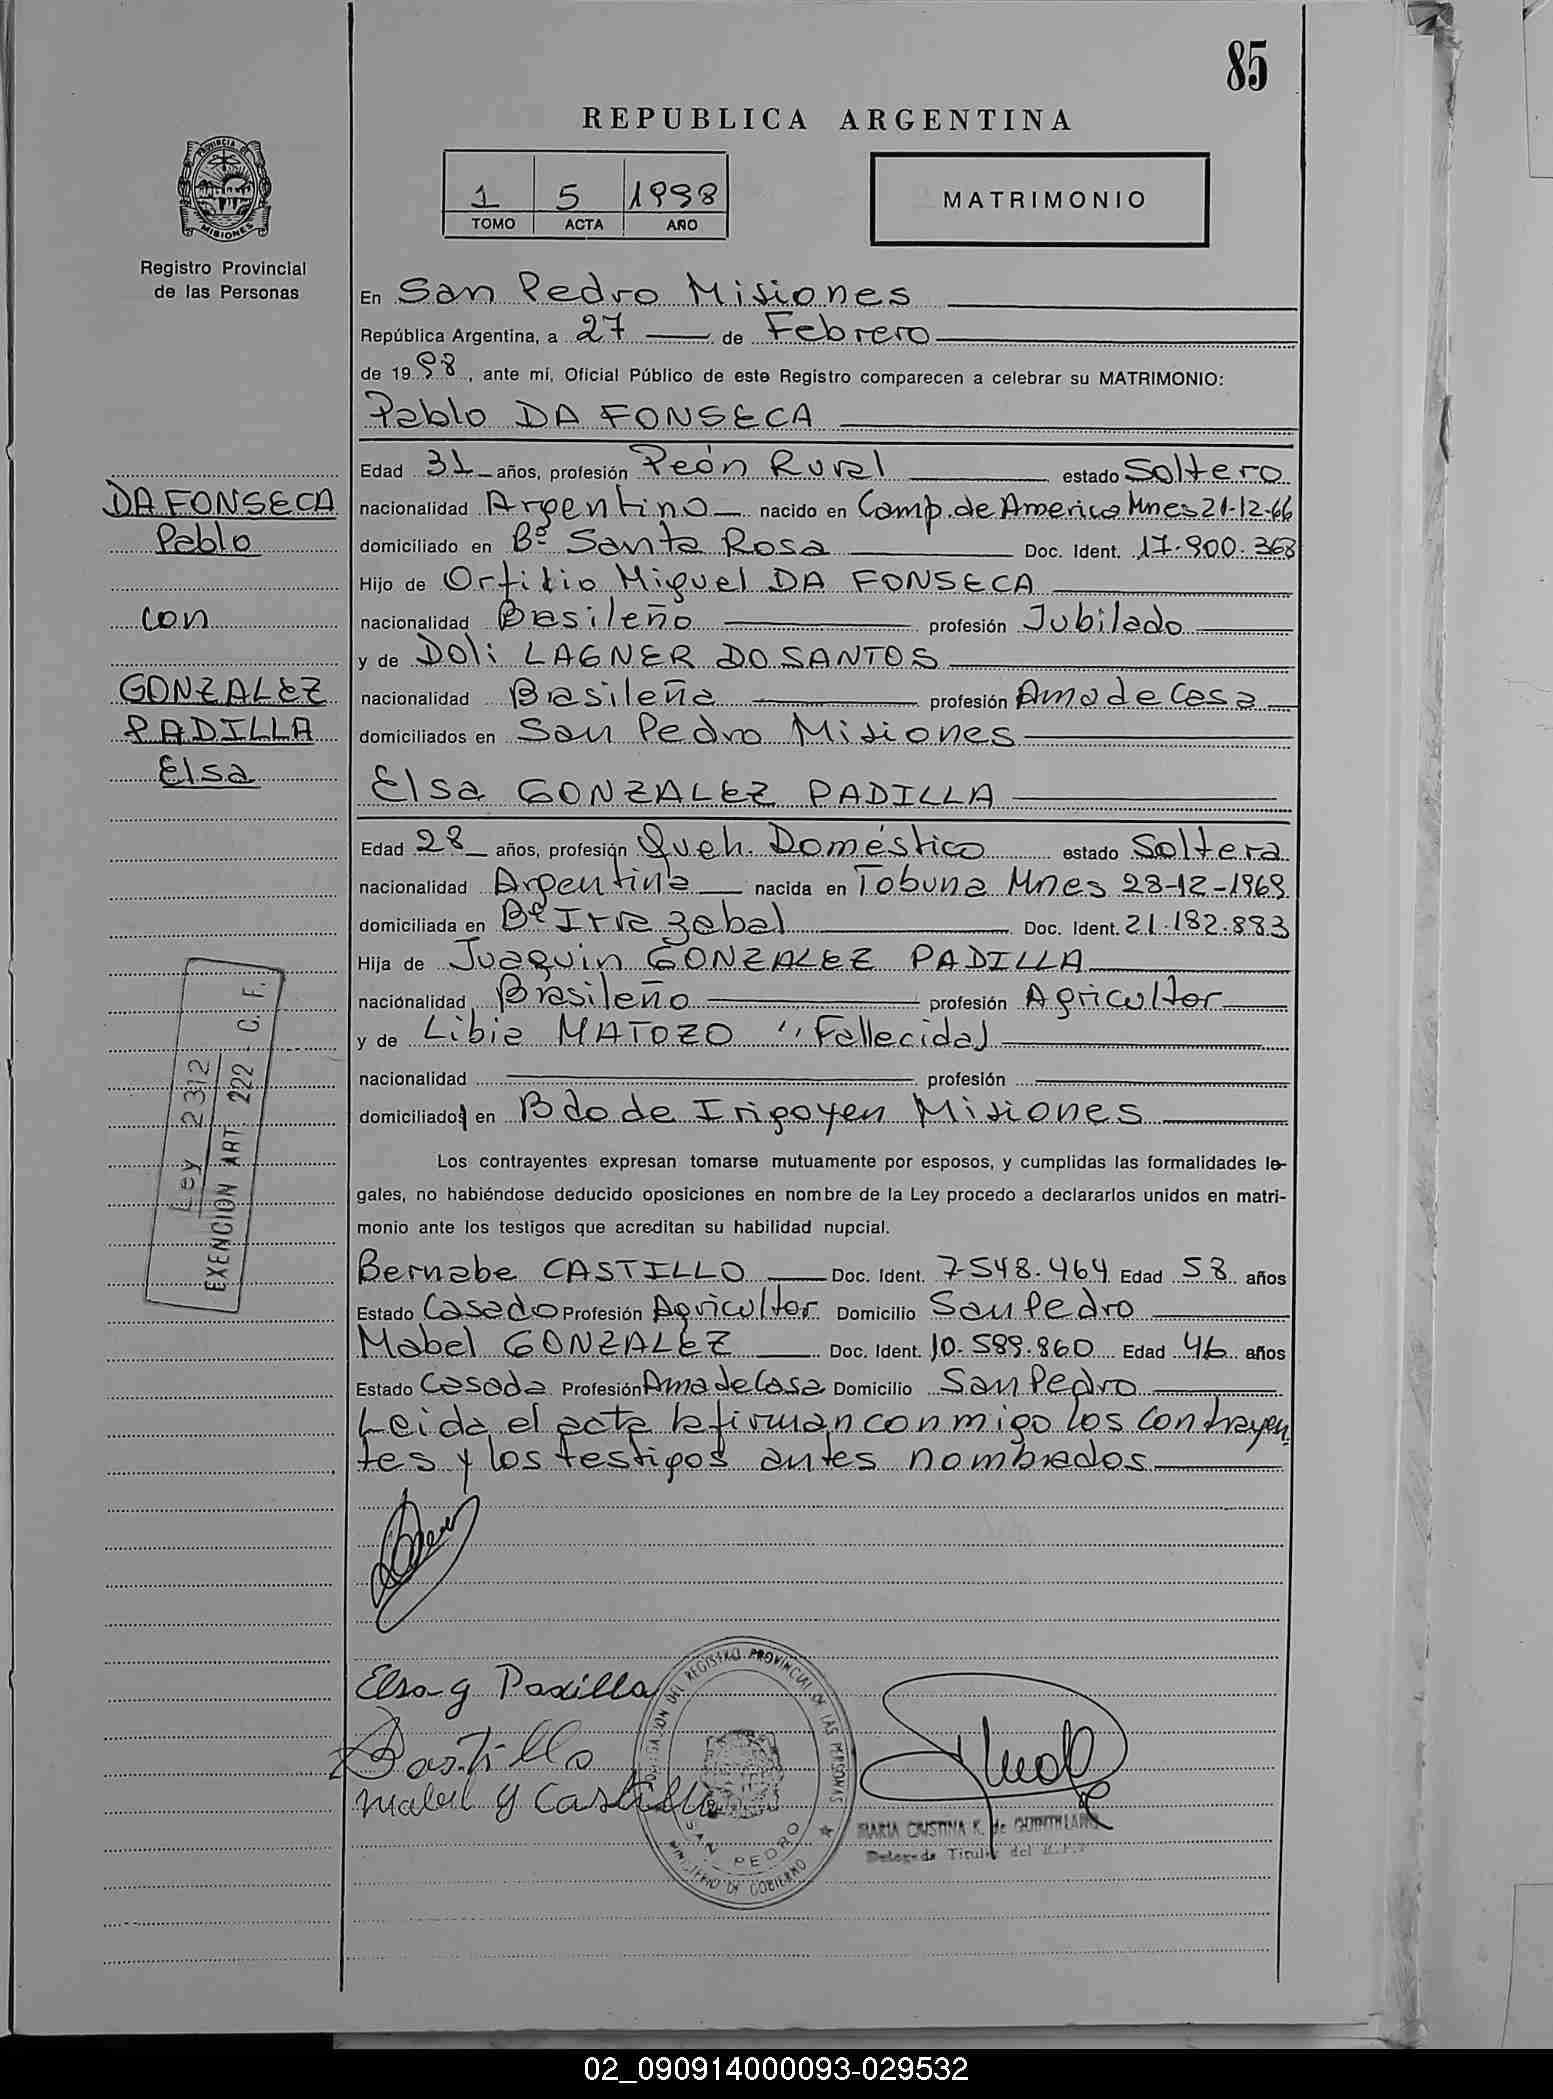 85
REPUBLICA ARGENTINA
1 5 1998
TOMO ACTA AÑO
MATRIMONIO
PROVINCIA DE
MISIONES
Registro Provincial
de las Personas
En San Pedro Misiones
República Argentina, a 27 de Febrero
de 1998, ante mí, Oficial Público de este Registro comparecen a celebrar su MATRIMONIO:
Pablo DA FONSECA
Edad 31 años, profesión Peón Rural estado Soltero
DA FONSECA
Pablo
con
GONZALEZ
PADILLA
Elsa
nacionalidad Argentino nacido en Camp. de America Mnes 21-12-66
domiciliado en Bº Santa Rosa Doc. Ident. 17.900.368
Hijo de Orfilio Miguel DA FONSECA
nacionalidad Brasileño profesión Jubilado
y de Doli LAGNER DO SANTOS
nacionalidad Brasileña profesión Ama de Casa
domiciliados en San Pedro Misiones
Elsa GONZALEZ PADILLA
Edad 28 años, profesión Queh. Doméstico estado Soltera
nacionalidad Argentina nacida en Tobuna Mnes 28-12-1969
domiciliada en Bº Irrazabal Doc. Ident. 21.182.883
Hija de Juaquin GONZALEZ PADILLA
nacionalidad Brasileño profesión Agricultor
y de Libia MATOZO "Fallecida)
nacionalidad profesión
domiciliados en Bdo de Irigoyen Misiones
Ley 2312
EXENCION ART. 222 C. F.
Los contrayentes expresan tomarse mutuamente por esposos, y cumplidas las formalidades le-
gales, no habiéndose deducido oposiciones en nombre de la Ley procedo a declararlos unidos en matri-
monio ante los testigos que acreditan su habilidad nupcial.
Bernabe CASTILLO Doc. Ident. 7548.464 Edad 58 años
Estado Casado Profesión Agricultor Domicilio San Pedro
Mabel GONZALEZ Doc. Ident. 10.589.860 Edad 46 años
Estado Casada Profesión Ama de Casa Domicilio San Pedro
Leida el acta la firman conmigo los contrayen-
tes y los testigos antes nombrados
Elsa g Padilla
Castillo
Mabel G Castillo
DELEGACION DEL REGISTRO PROVINCIAL DE LAS PERSONAS
SAN PEDRO
MINISTERIO DE GOBIERNO
MARIA CRISTINA K. de QUINTILLAN
Delegada Titular del R.P.P
02_090914000093-029532